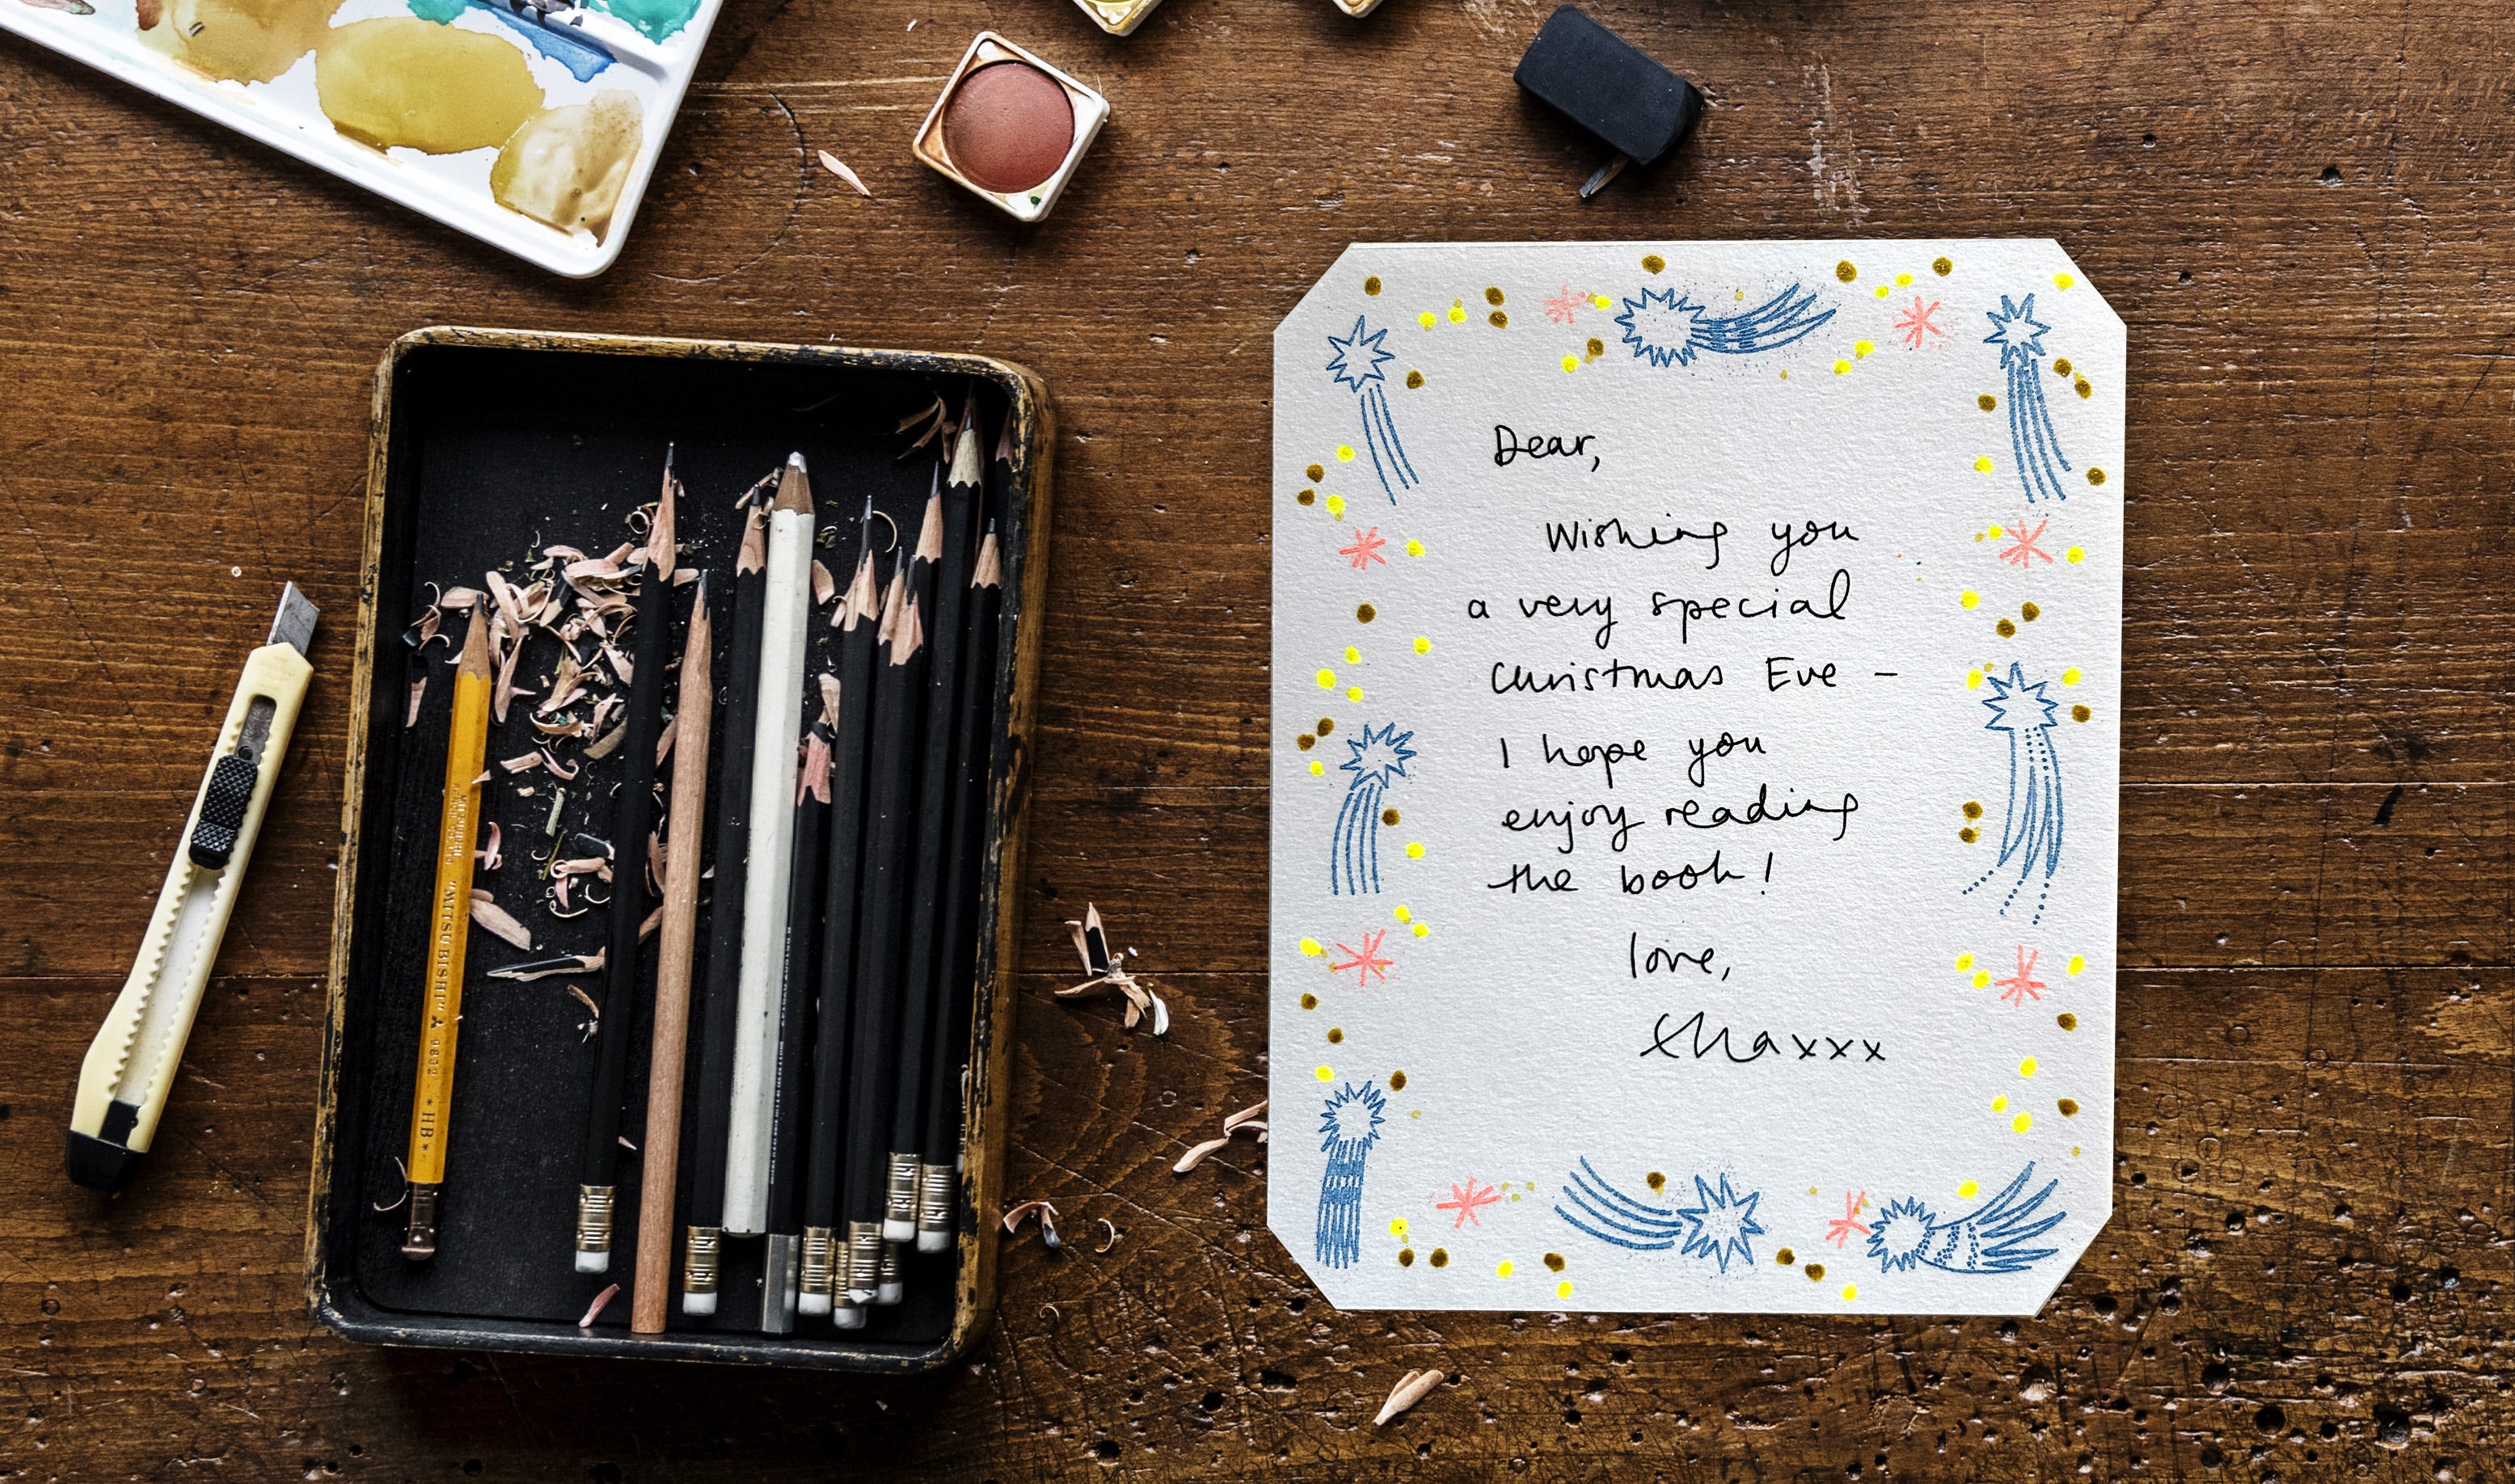 Dear,
Wishing you
a very special
Christmas Eve –
I hope you
enjoy reading
the book!
love,
xxx
"MITSU-BISHI" 9852 * HB *